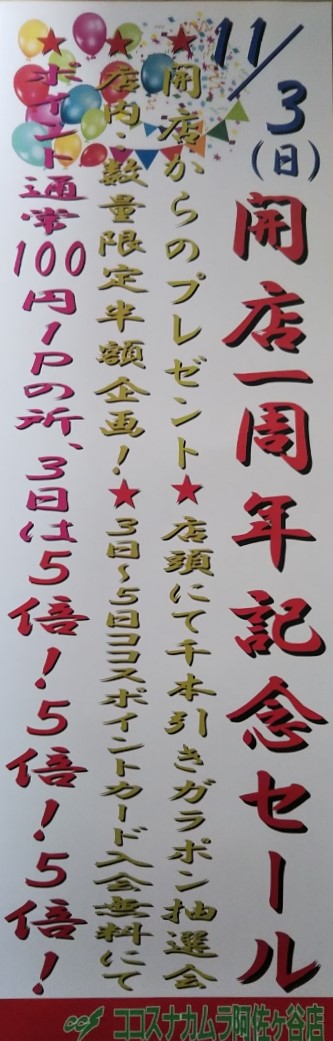 11/3(日)
開店一周年記念セール
★開店からのプレゼント★店頭にて千本引きガラポン抽選会
★店内・数量限定半額企画!★3日~5日ココスポイントカード入会無料にて
★ポイント通常100円1Pの所、3日は5倍!5倍!5倍!
CCS ココスナカムラ阿佐ヶ谷店